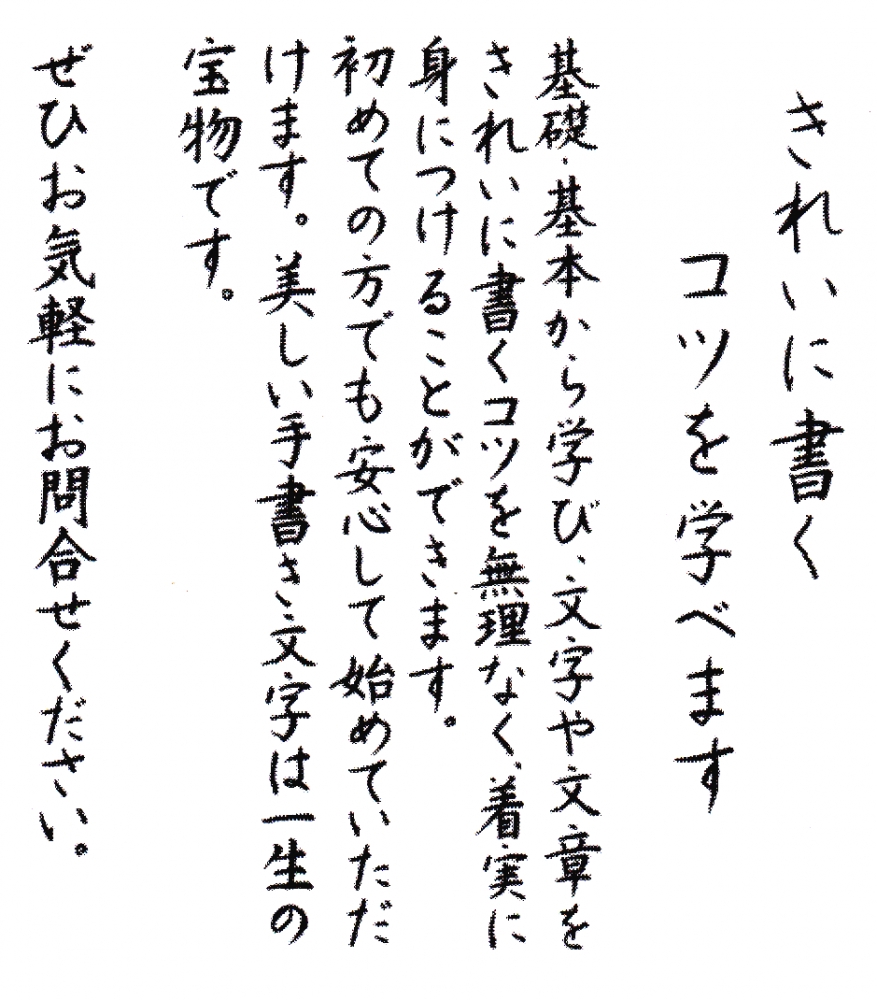 きれいに書く
コツを学べます
基礎・基本から学び、文字や文章を
きれいに書くコツを無理なく、着実に
身につけることができます。
初めての方でも安心して始めていただ
けます。美しい手書き文字は一生の
宝物です。
ぜひお気軽にお問合せください。